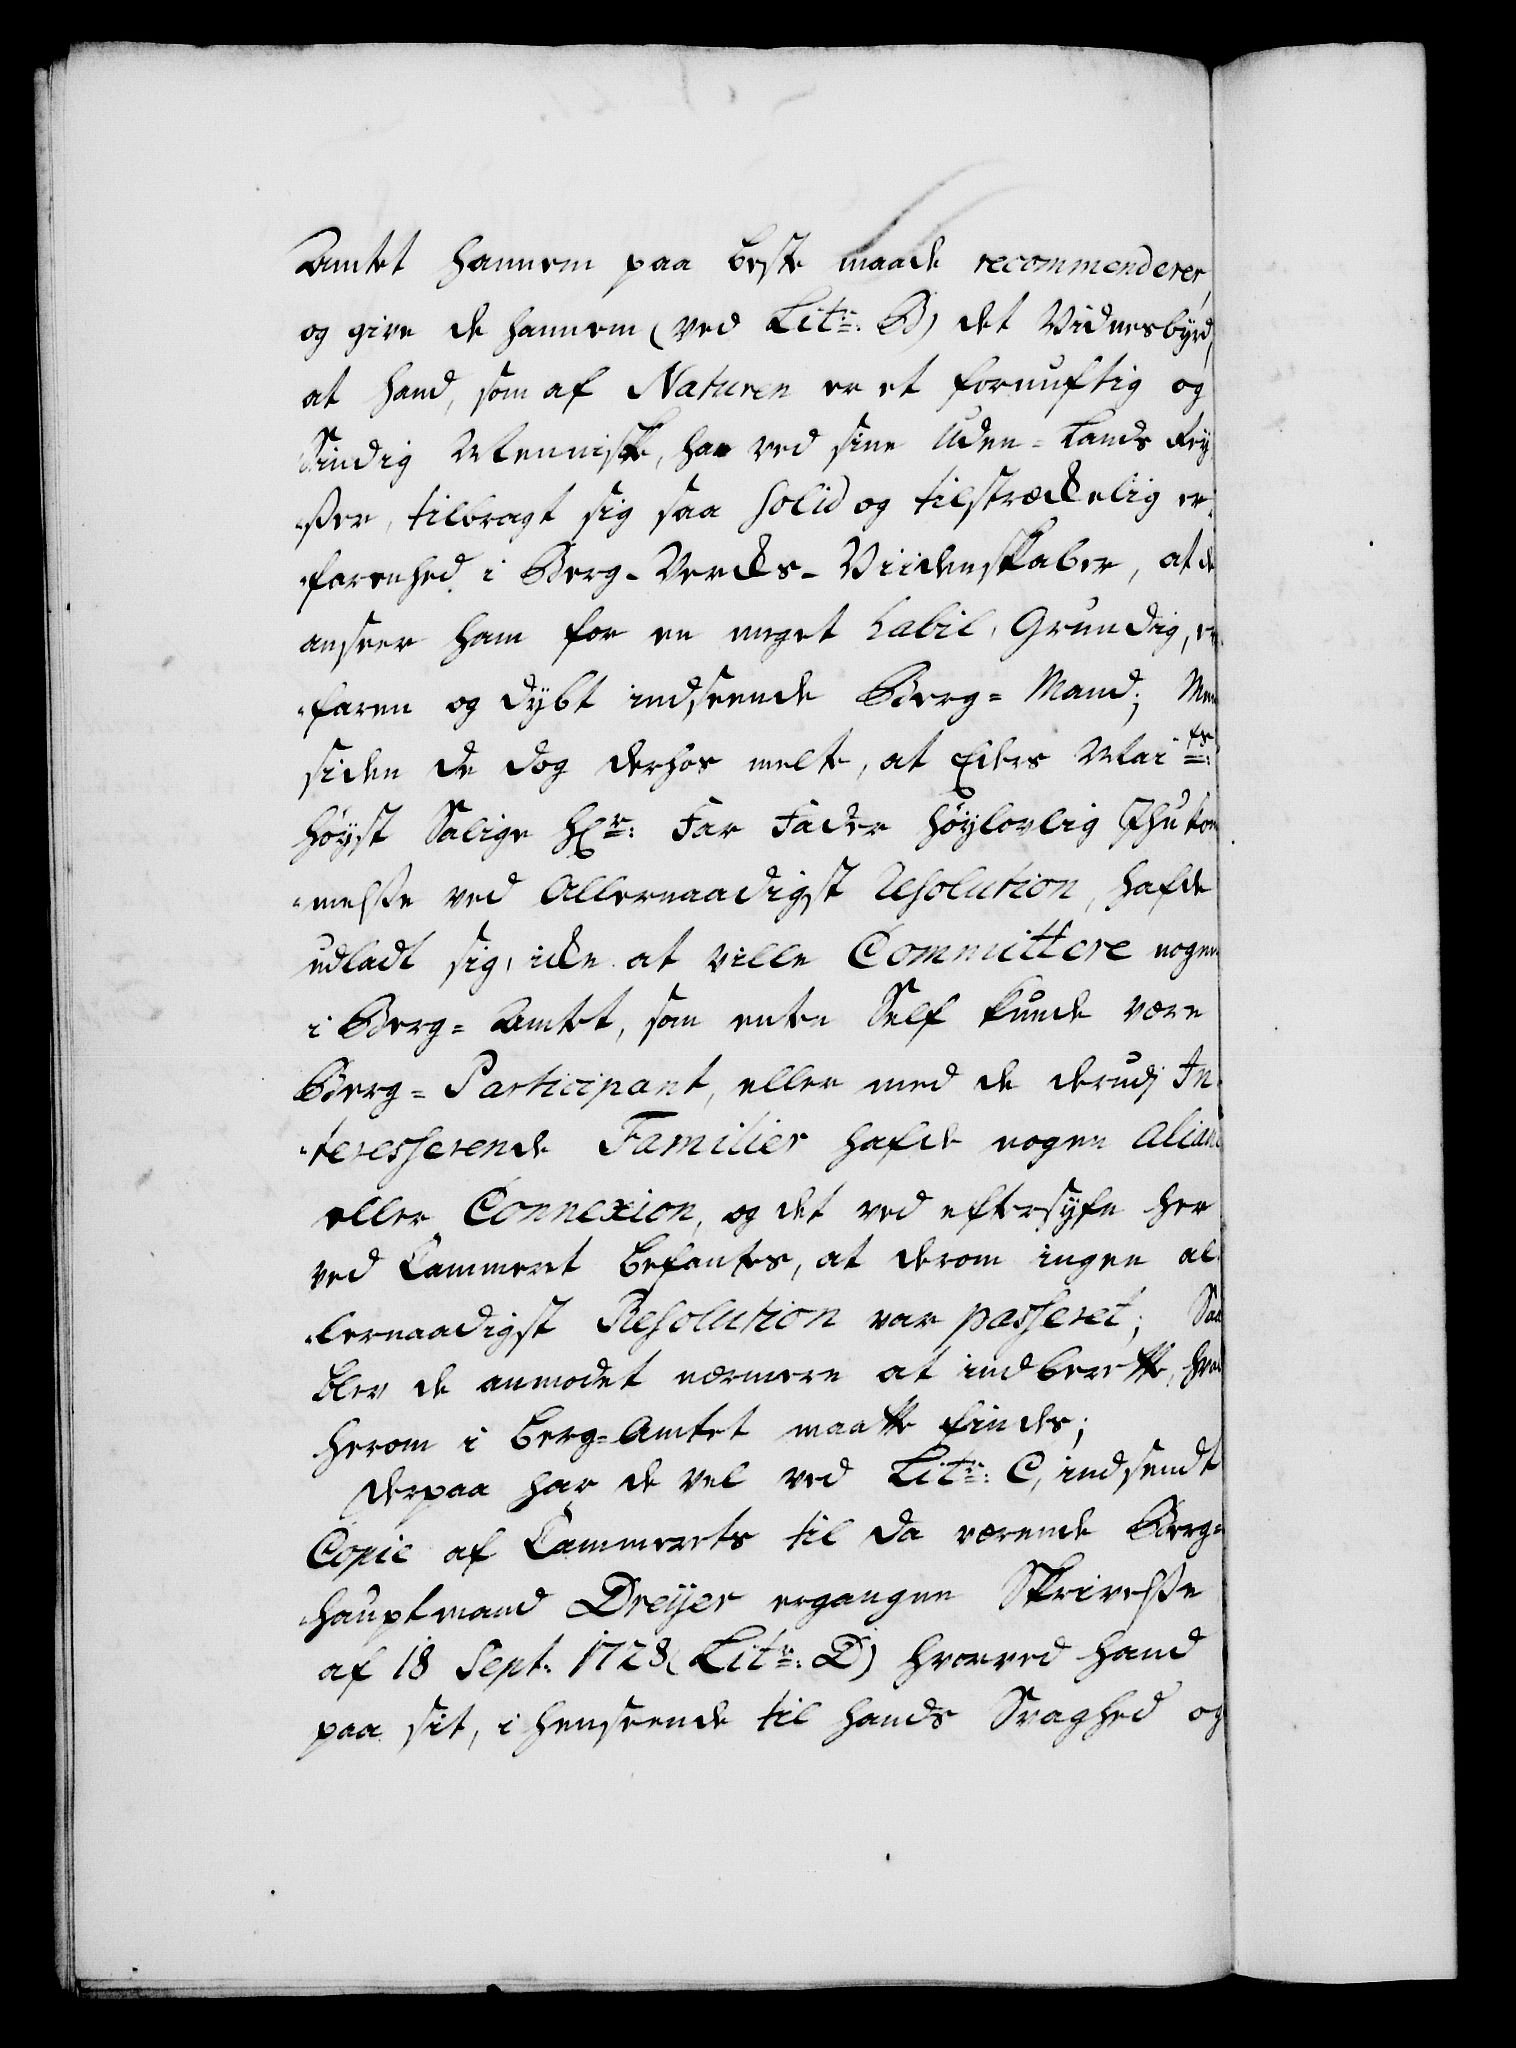 Amtet hannem paa beste maade recommenderer,
og give de hannem (ved Litr: B) det Vidnesbyrd,
at hand, som af Naturen er et fornuftig og
Sindig Menniske, har ved sine Uden-Lands Rey-
-ser, tilbragt sig saa solid og tilstræckelig er-
-farenhed i Berg-Vercks-Viidenskaber, at de
anseer ham for en meget habil, Grundig, er-
-faren og dybt indseende Berg-Mand; Men
siden de dog derhos melte, at Eders Maits:
høyst Salige Hr: Far Fader høylovlig Ihukom-
-melsse ved Allernaadigst Resolution, hafde
udladt sig, icke at ville Committere nogen
i Berg-Amtet, som enten Self kunde være
Berg-Participant, eller med de derudj In-
-teresserende Familier hafde nogen Alianc
eller Connexion, og det ved eftersyn her
ved Cammeret befantes, at derom ingen al-
-lernaadigst Resolution var passeret; Saa
blev de anmodet nærmere at indberette, hvad
herom i Berg-Amtet maatte findes;
Derpaa har de vel ved Litr: C, indsendt
Copie af Cammerets til da værende Berg-
-hauptmand Dreyer ergangne Skrivelsse
af 18 Sept: 1728 (Litr: D) hvorved hand
paa sit, i henseende til hands Svaghed og